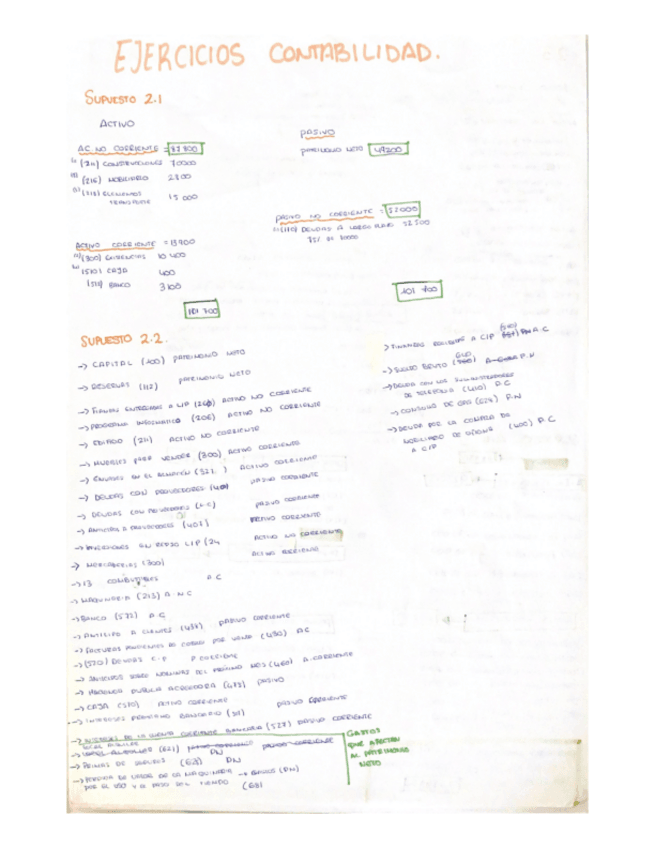 EJERCICIOS CONTABILIDAD.
SUPUESTO 2.1
ACTIVO
AC. NO CORRIENTE = 87 800
(211) CONSTRUCCIONES 70000
(216) MOBILIARIO 2800
(218) ELEMENTOS
TRANSPORTE 15 000
ACTIVO CORRIENTE = 13900
(300) 10 400
(570) CAJA 400
BANCO 3100
101 700
PASIVO
PATRIMONIO NETO 49200
PASIVO NO CORRIENTE = 52000
DEUDAS A LARGO PLAZO 52 500
101 700
SUPUESTO 2.2.
-> CAPITAL (100) PATRIMONIO NETO
-> RESERVAS (112) PATRIMONIO NETO
-> FIANZAS ENTREGADAS A L/P (260) ACTIVO NO CORRIENTE
-> PROGRAMA INFORMATICO (206) ACTIVO NO CORRIENTE
-> EDIFICIO (211) ACTIVO NO CORRIENTE
-> MUEBLES PARA VENDER (300) ACTIVO CORRIENTE
-> ENVASES EN EL ALMACÉN (327) ACTIVO CORRIENTE
-> DEUDAS CON PROVEEDORES (400) PASIVO CORRIENTE
-> DEUDAS CON PASIVO CORRIENTE
-> ANTICIPOS A PROVEEDORES (407) CORRIENTE
-> INVERSIONES L/P (24 ACTIVO NO CORRIENTE
-> MERCADERIAS (300) ACTIVO CORRIENTE
-> COMBUSTIBLES A.C
-> MAQUINARIA (213) A.N.C
-> BANCO (572) A.C
-> ANTICIPO A CLIENTES (438) PASIVO CORRIENTE
-> FACTURAS PENDIENTES DE COBRO POR VENTA (430) AC
-> (520) DEUDAS C.P P CORRIENTE
-> ANTICIPOS SOBRE NOMINAS DEL PRÓXIMO MES (460) A. CORRIENTE
-> HACIENDA PUBLICA ACREEDORA (475) PASIVO
-> CAJA (570) ACTIVO CORRIENTE
-> INTERESES PRESTAMO BANCARIO PASIVO CORRIENTE
-> INTERESES DE LA CUENTA CORRIENTE BANCARIA (527) PASIVO CORRIENTE
(621) PN
-> PRIMAS DE SEGUROS (625) PN
-> PERDIDA DE VALOR DE LA MAQUINARIA -> GASTOS (PN)
POR EL USO Y EL PASO DEL TIEMPO (681
GASTOS
QUE AFECTAN
AL PATRIMONIO
NETO
-> FIANZAS A C/P A.C
-> SUELDO BRUTO (640) P.N
-> DEUDA CON LOS SUMINISTRADORES
DE TELEFONIA (410) P.C
-> CONSUMO DE GAS (628) P.N
-> DEUDA POR LA COMPRA DE
MOBILIARIO DE OFICINA (400) P.C
A C/P